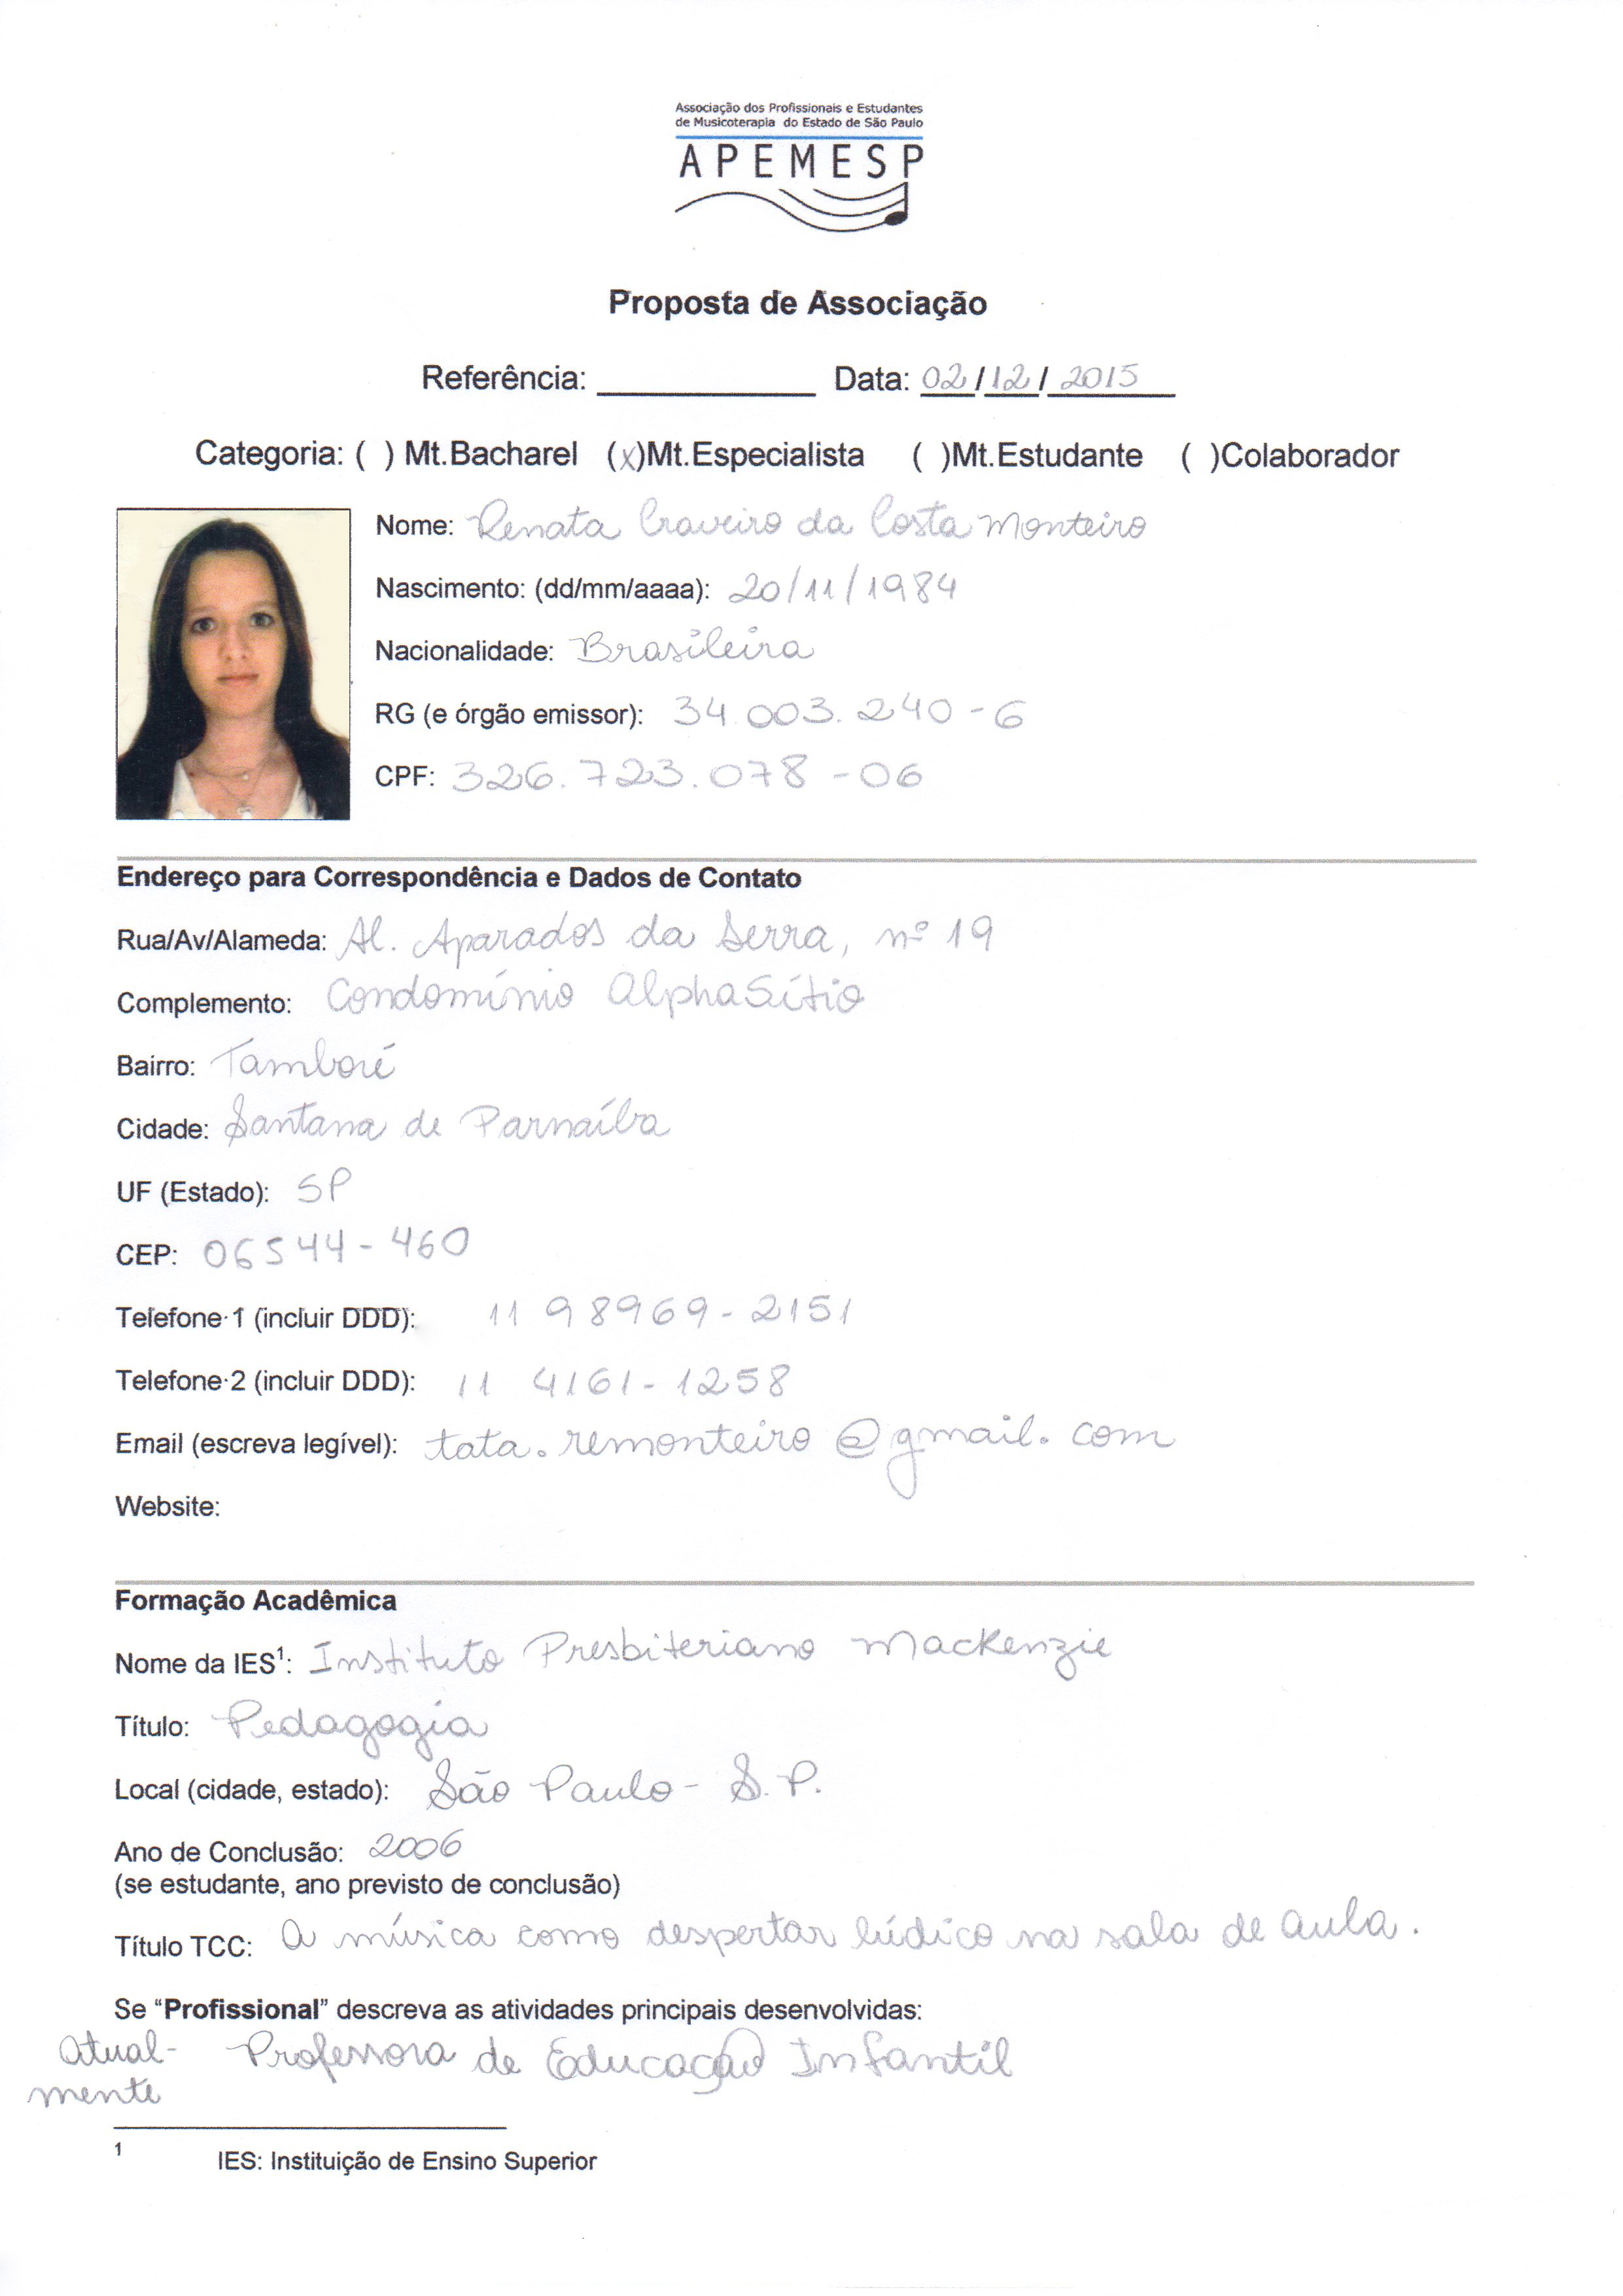 Associação dos Profissionais e Estudantes
de Musicoterapia do Estado de São Paulo
APEMESP
Proposta de Associação
Referência: ____________ Data: 02/12/2015
Categoria: ( ) Mt.Bacharel (x)Mt.Especialista ( )Mt.Estudante ( )Colaborador
Nome: Renata Craveiro da Costa Monteiro
Nascimento: (dd/mm/aaaa): 20/11/1984
Nacionalidade: Brasileira
RG (e órgão emissor): 34.003.240-6
CPF: 326.723.078-06
Endereço para Correspondência e Dados de Contato
Rua/Av/Alameda: Al. Aparados da Serra, nº 19
Complemento: Condomínio AlphaSítio
Bairro: Tamboré
Cidade: Santana de Parnaíba
UF (Estado): SP
CEP: 06544-460
Telefone 1 (incluir DDD): 11 98969-2151
Telefone 2 (incluir DDD): 11 4161-1258
Email (escreva legível): tata.remonteiro@gmail.com
Website:
Formação Acadêmica
Nome da IES¹: Instituto Presbiteriano Mackenzie
Título: Pedagogia
Local (cidade, estado): São Paulo - S.P.
Ano de Conclusão: 2006
(se estudante, ano previsto de conclusão)
Título TCC: A música como despertar lúdico na sala de aula.
Se “Profissional” descreva as atividades principais desenvolvidas:
Atual- Professora de Educação Infantil
mente
1 IES: Instituição de Ensino Superior